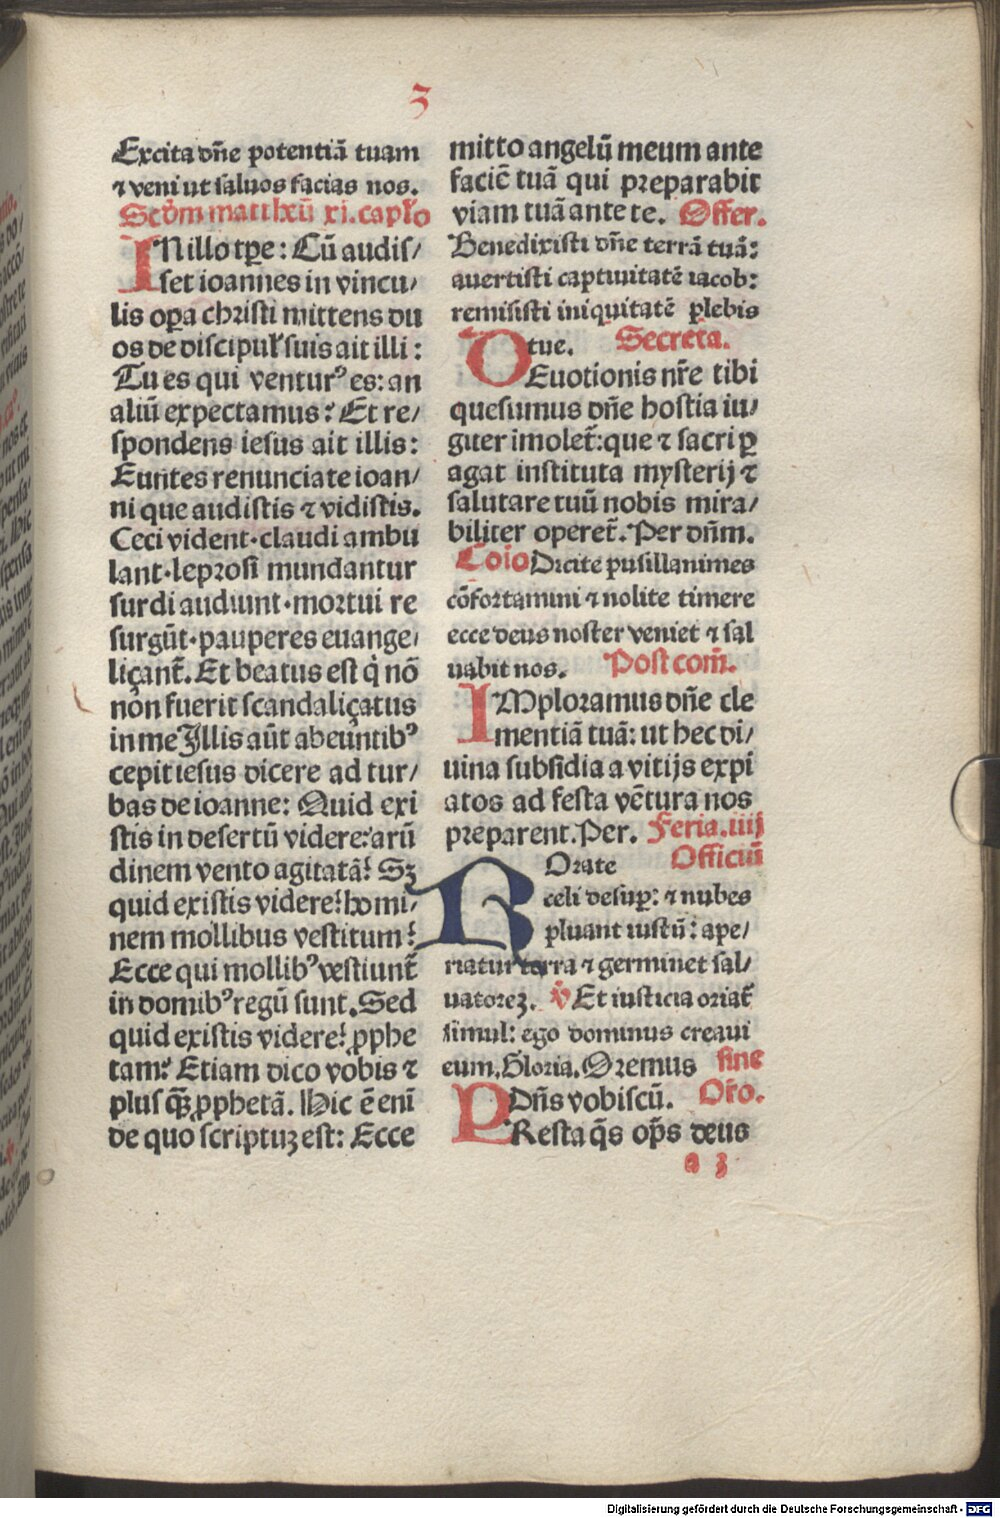 3
Excita dñe potentiã tuam
⁊ veni ut saluos facias nos.
Scðm mattheũ xi. capł'o
INillo tꝑe: Cũ audis/
set ioannes in vincu/
lis oꝑa christi mittens du
os de discipuł suis ait illi:
Tu es qui venturꝰ es: an
aliũ expectamus? Et re/
spondens iesus ait illis:
Euntes renunciate ioan/
ni que audistis ⁊ vidistis.
Ceci vident·claudi ambu
lant·leprosi mundantur
surdi audiunt·mortui re
surgũt·pauperes euange/
liçant̃. Et beatus est q̇ nõ
non fuerit scandaliçatus
in me Illis aũt abeuntibꝰ
cepit iesus dicere ad tur/
bas de ioanne: Quid exi
stis in desertũ videre? arũ
dinem vento agitatã? Sꝫ
quid existis videre? homi/
nem mollibus vestitum?
Ecce qui mollibꝰ vestiunt̃
in domibꝰ regũ sunt. Sed
quid existis videre? ꝓphe
tam? Etiam dico vobis ⁊
plus qꝫ̃ ꝓphetã. Hic ẽ enĩ
de quo scriptuꝫ est: Ecce
mitto angelũ meum ante
faciẽ tuã qui preparabit
viam tuã ante te. Offer.
Benedixisti dñe terrã tuã:
auertisti captiuitatẽ iacob:
remisisti iniquitatẽ plebis
tue. Secreta.
DEuotionis nr̃e tibi
quesumus dñe hostia iu/
giter imolet̃: que ⁊ sacri ꝑ
agat instituta mysterij ⁊
salutare tuũ nobis mira/
biliter operet̃. Per dñm.
Coĩo Dicite pusillanimes
cõfortamini ⁊ nolite timere
ecce deus noster veniet ⁊ sal
uabit nos. Post com̃.
IMploramus dñe cle
mentiã tuã: ut hec di/
uina subsidia a vitijs expi
atos ad festa vẽtura nos
preparent. Per. Feria. iiij
Officiũ
ROrate
celi desuꝑ: ⁊ nubes
pluant iustũ: ape/
riatur terra ⁊ germinet sal/
uatoreꝫ. ℣ Et iusticia oriat̃
simul: ego dominus creaui
eum. Gloria. Oremus sine
Dñs vobiscũ. Or̃o.
PResta q̃s op̃s deus
a 3
Digitalisierung gefördert durch die Deutsche Forschungsgemeinschaft - DFG